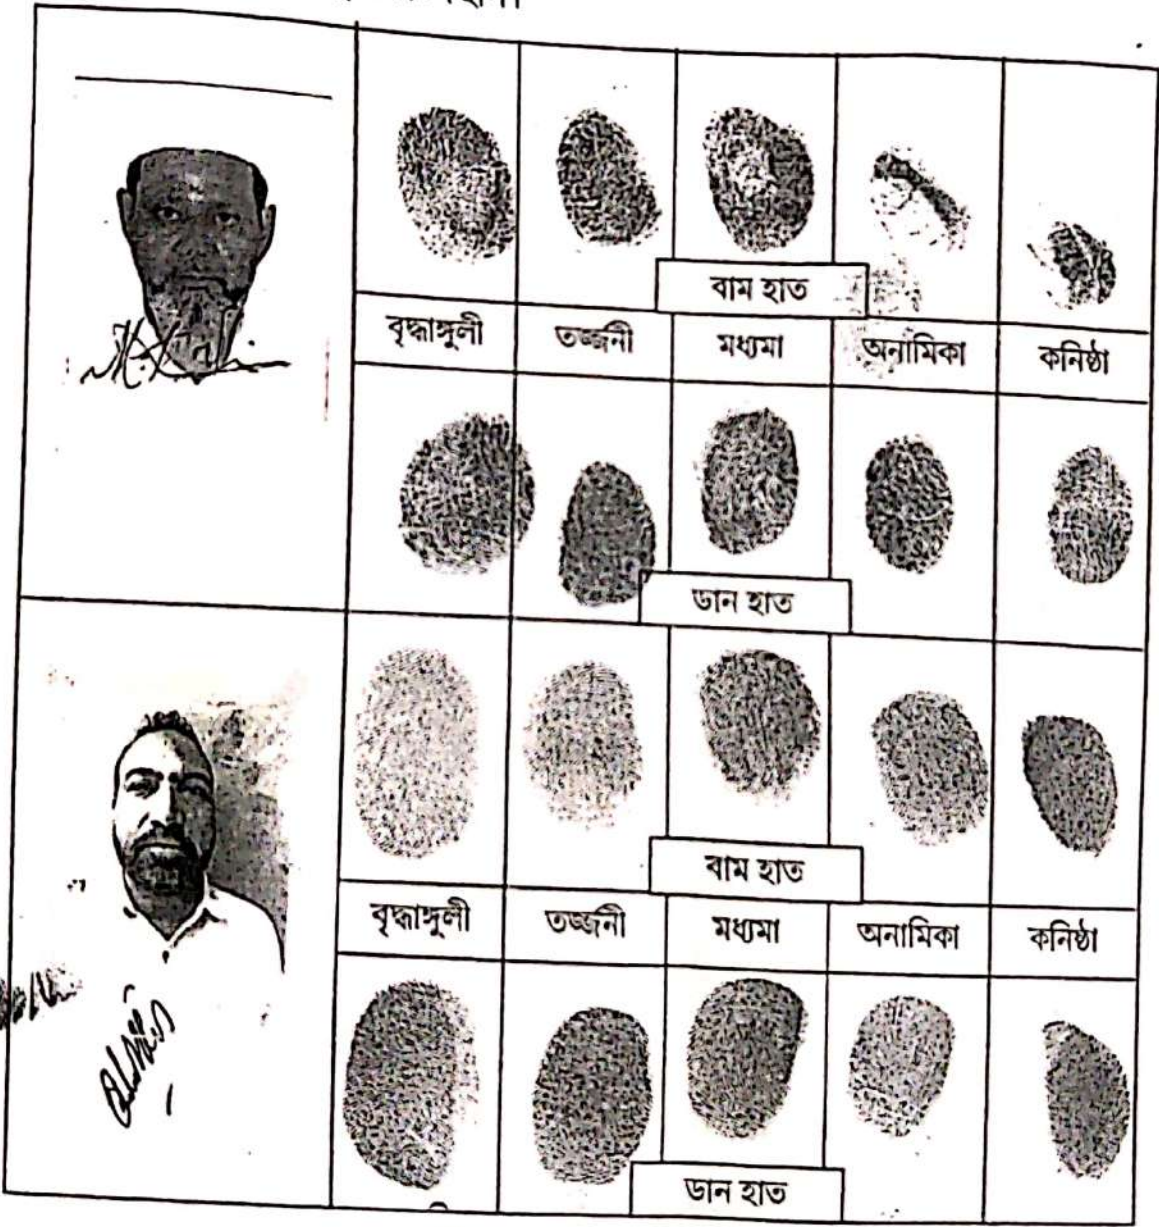 বাম হাত
বৃদ্ধাঙ্গুলী তজ্জনী মধ্যমা অনামিকা কনিষ্ঠা
ডান হাত
বাম হাত
বৃদ্ধাঙ্গুলী তজ্জনী মধ্যমা অনামিকা কনিষ্ঠা
ডান হাত